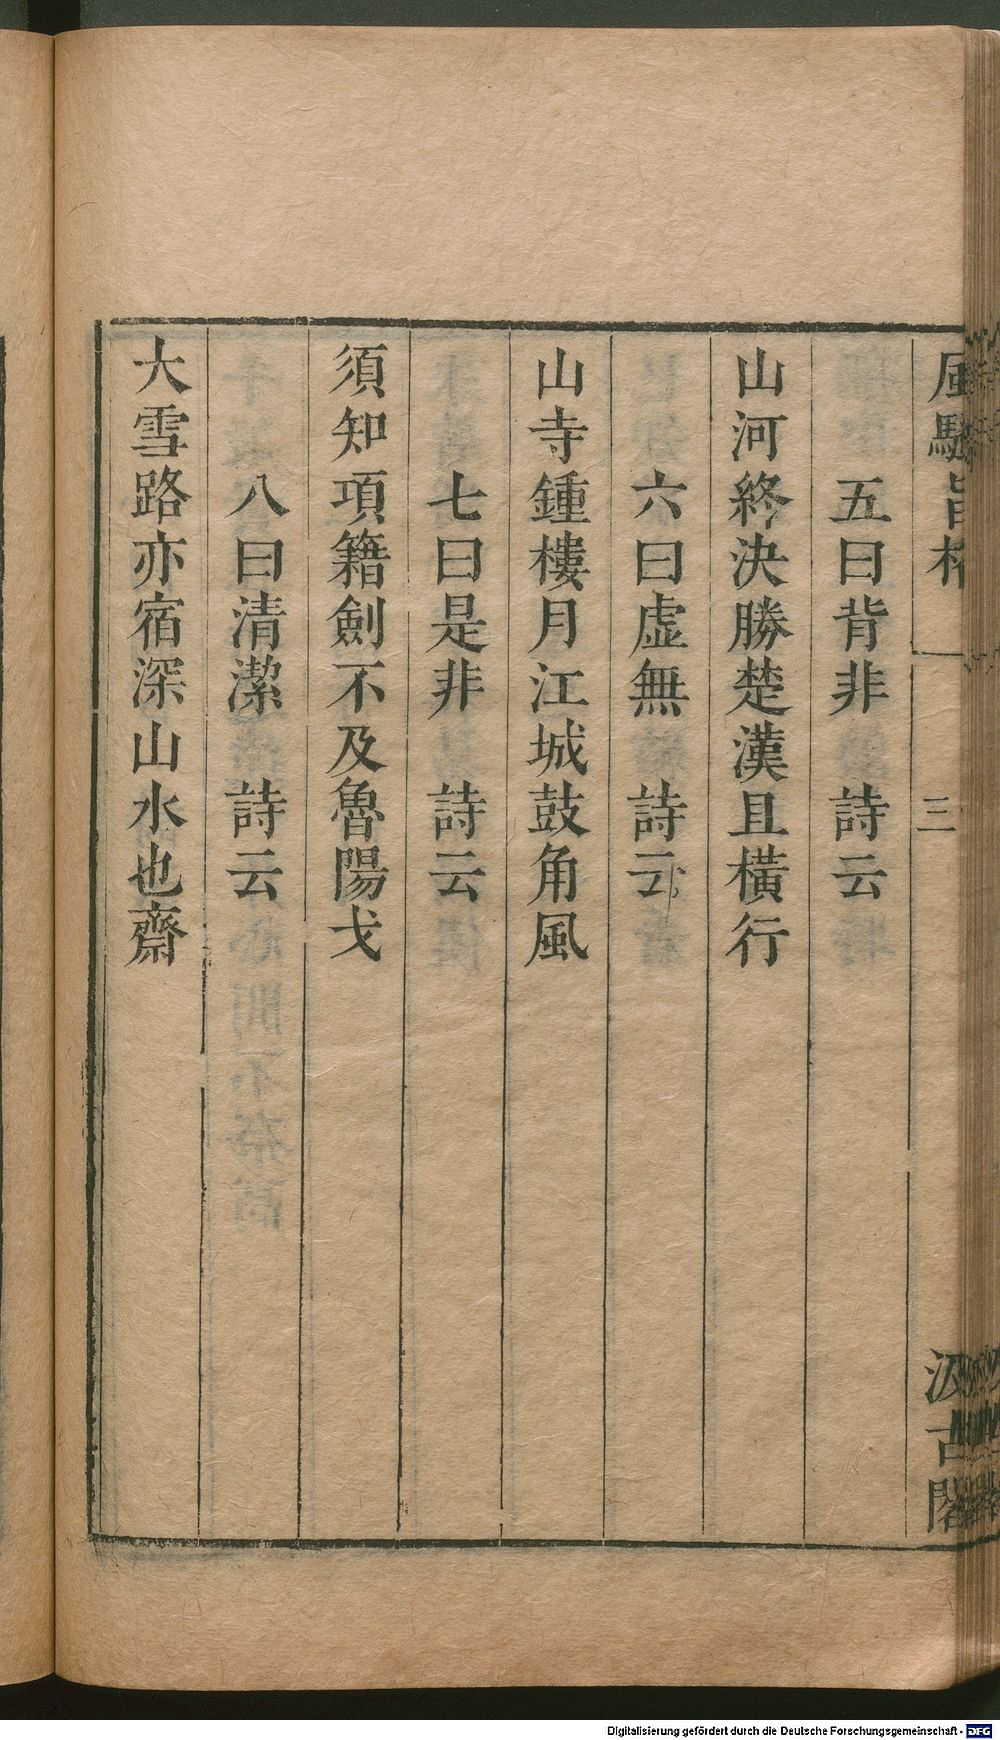 風騷旨格
三
汲古閣
五曰背非　詩云
山河終決勝楚漢且橫行
六曰虛無　詩云
山寺鍾樓月江城鼓角風
七曰是非　詩云
須知項籍劍不及魯陽戈
八曰清潔　詩云
大雪路亦宿深山水也齋
Digitalisierung gefördert durch die Deutsche Forschungsgemeinschaft - DFG